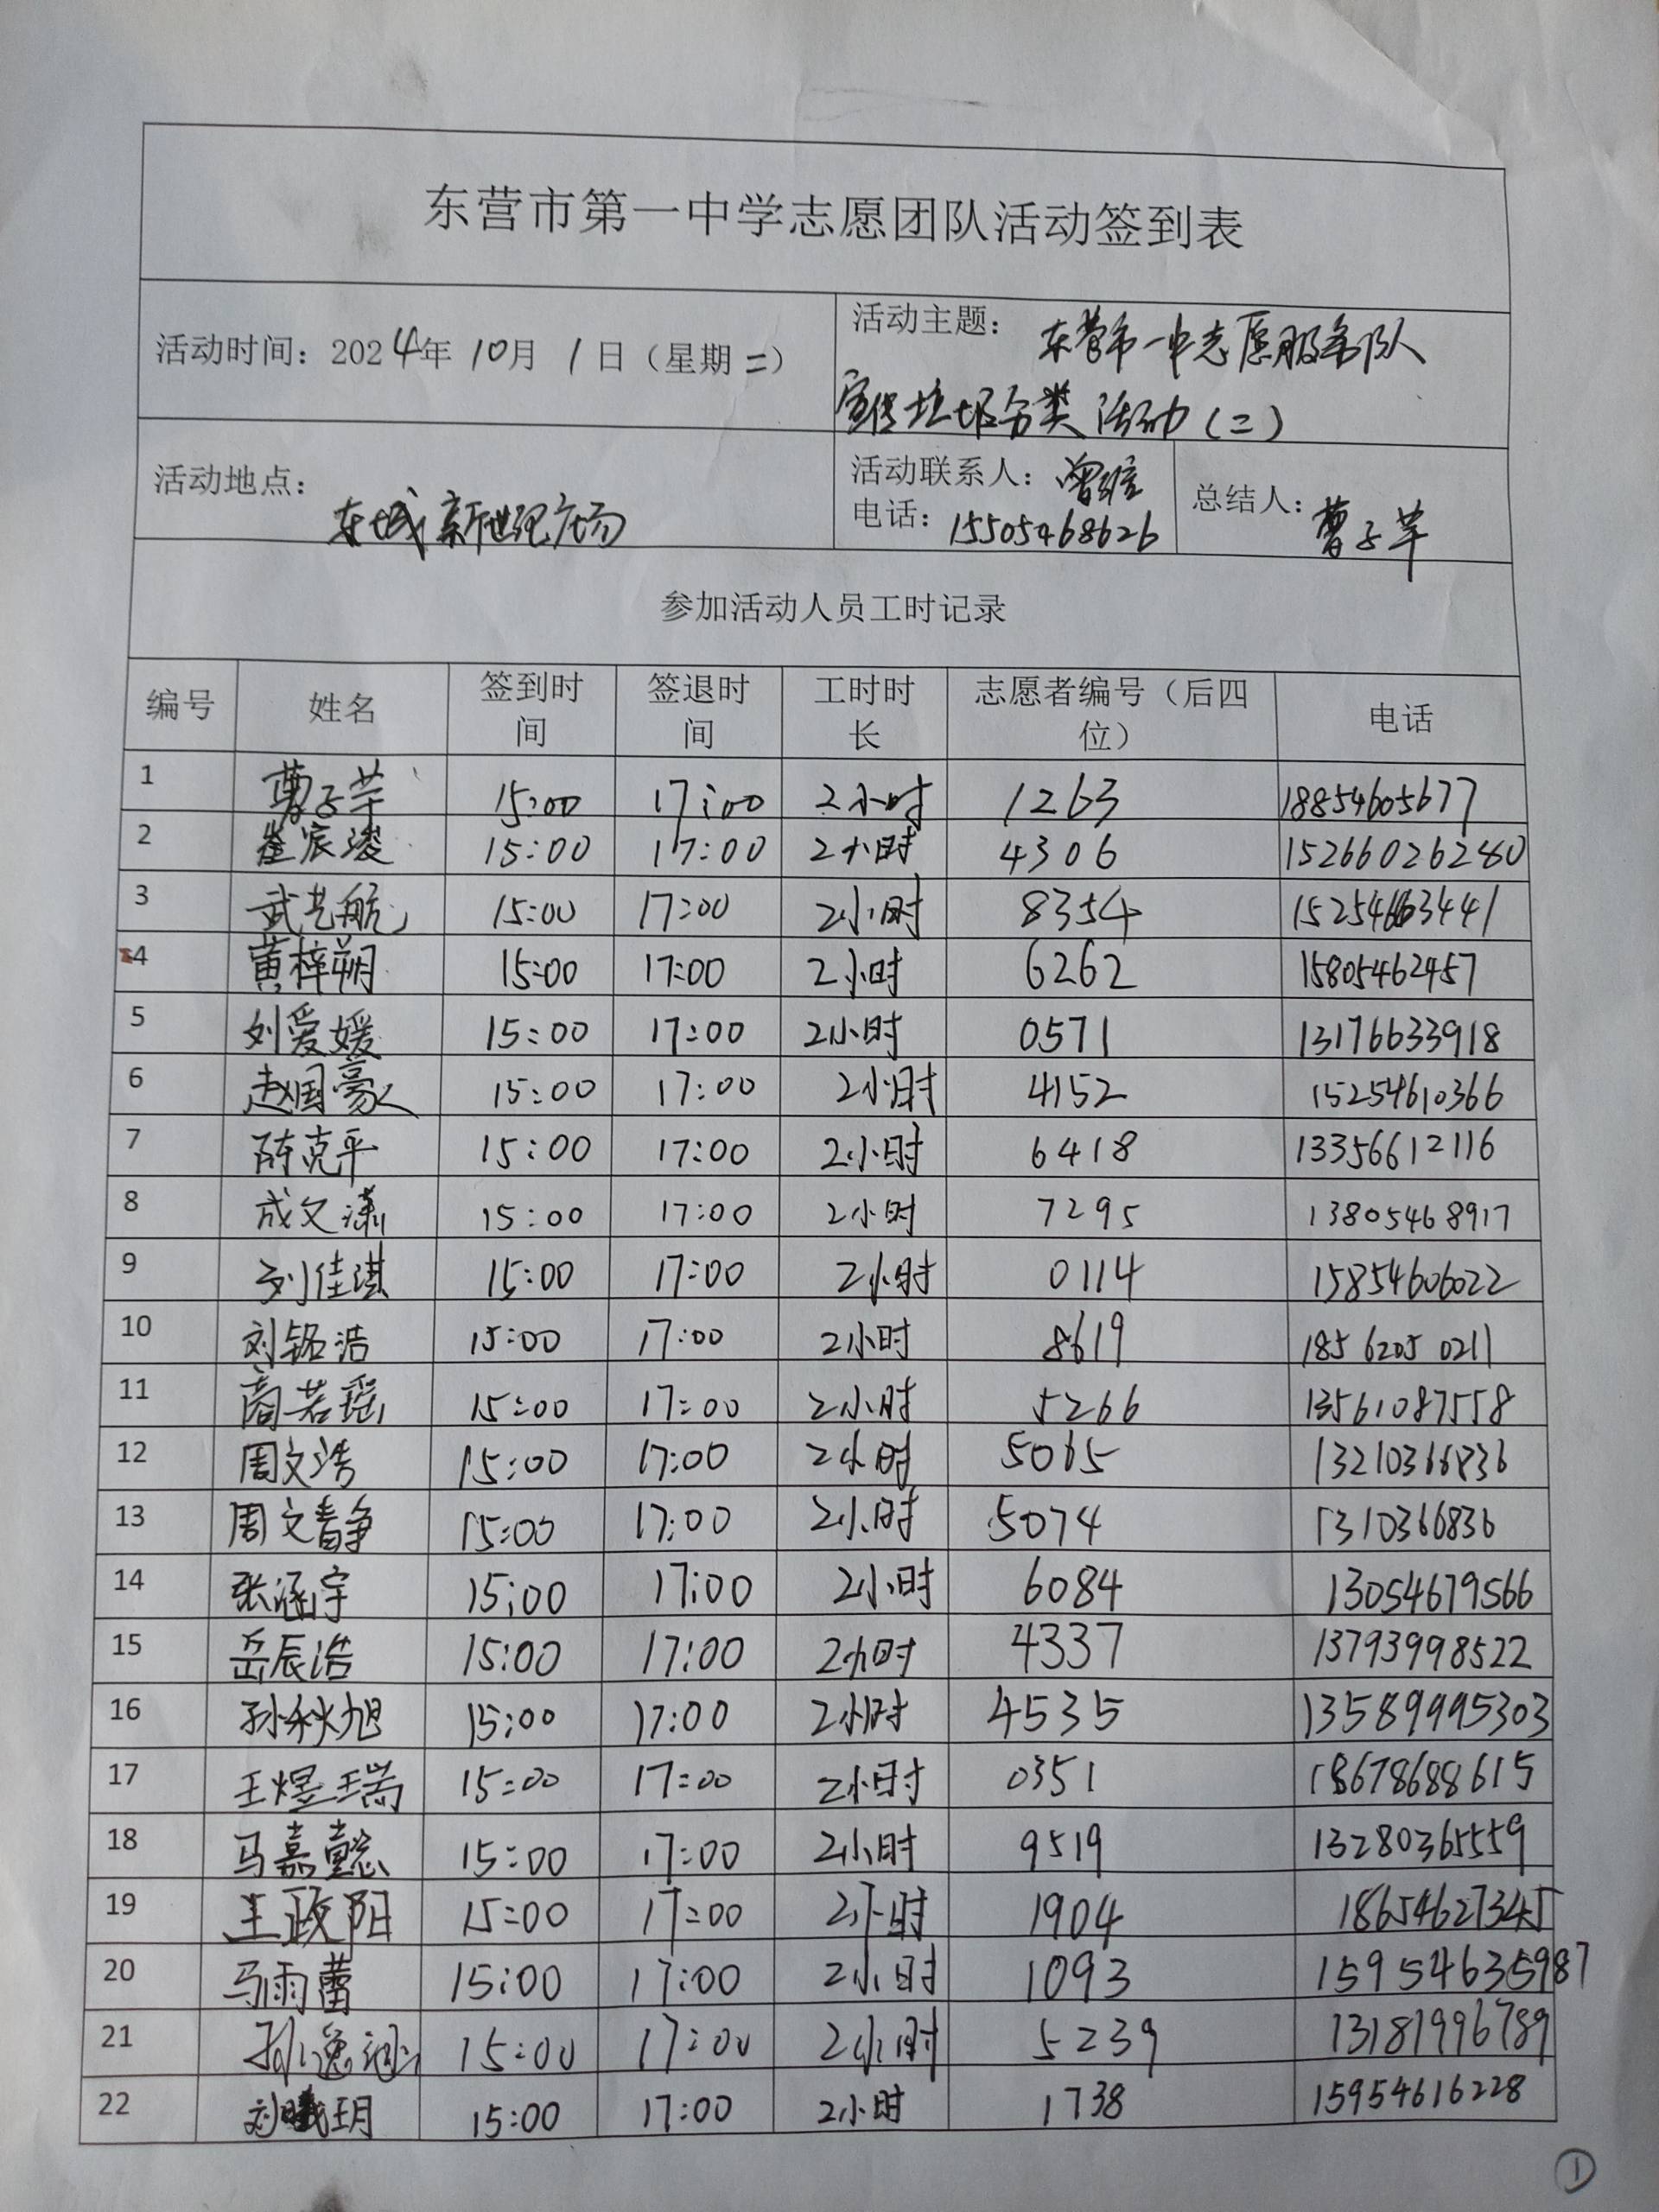 东营市第一中学志愿团队活动签到表
活动时间：2024年 10月 1日（星期二）
活动主题： 东营市一中志愿服务队
宣传垃圾分类活动（二）
活动地点：
东城新世纪广场
活动联系人：
电话：15505468626
总结人：曹子芊
参加活动人员工时记录
编号 姓名 签到时间 签退时间 工时时长 志愿者编号（后四位） 电话
1 曹子芊 15:00 17:00 2小时 1263 18854605677
2 崔宸浚 15:00 17:00 2小时 4306 15266026280
3 武艺航 15:00 17:00 2小时 8354 15254663441
4 黄梓朔 15:00 17:00 2小时 6262 15805462457
5 刘爱媛 15:00 17:00 2小时 0571 13176633918
6 赵国豪 15:00 17:00 2小时 4152 15254610366
7 陈克平 15:00 17:00 2小时 6418 13356612116
8 成文潇 15:00 17:00 2小时 7295 13805468917
9 刘佳淇 15:00 17:00 2小时 0114 15854606022
10 刘铭浩 15:00 17:00 2小时 8619 18562050211
11 商若瑶 15:00 17:00 2小时 5266 13561087558
12 周文涛 15:00 17:00 2小时 5065 13210366836
13 周文静 15:00 17:00 2小时 5074 1310366836
14 张涵宇 15:00 17:00 2小时 6084 13054679566
15 岳辰浩 15:00 17:00 2小时 4337 13793998522
16 孙秋旭 15:00 17:00 2小时 4535 13589995303
17 王煜瑞 15:00 17:00 2小时 0351 18678688615
18 马嘉懿 15:00 17:00 2小时 9519 13280365559
19 王政阳 15:00 17:00 2小时 1904 18654627345
20 马雨蕾 15:00 17:00 2小时 1093 15954635987
21 15:00 17:00 2小时 5239 13181996789
22 刘曦玥 15:00 17:00 2小时 1738 15954616228
①